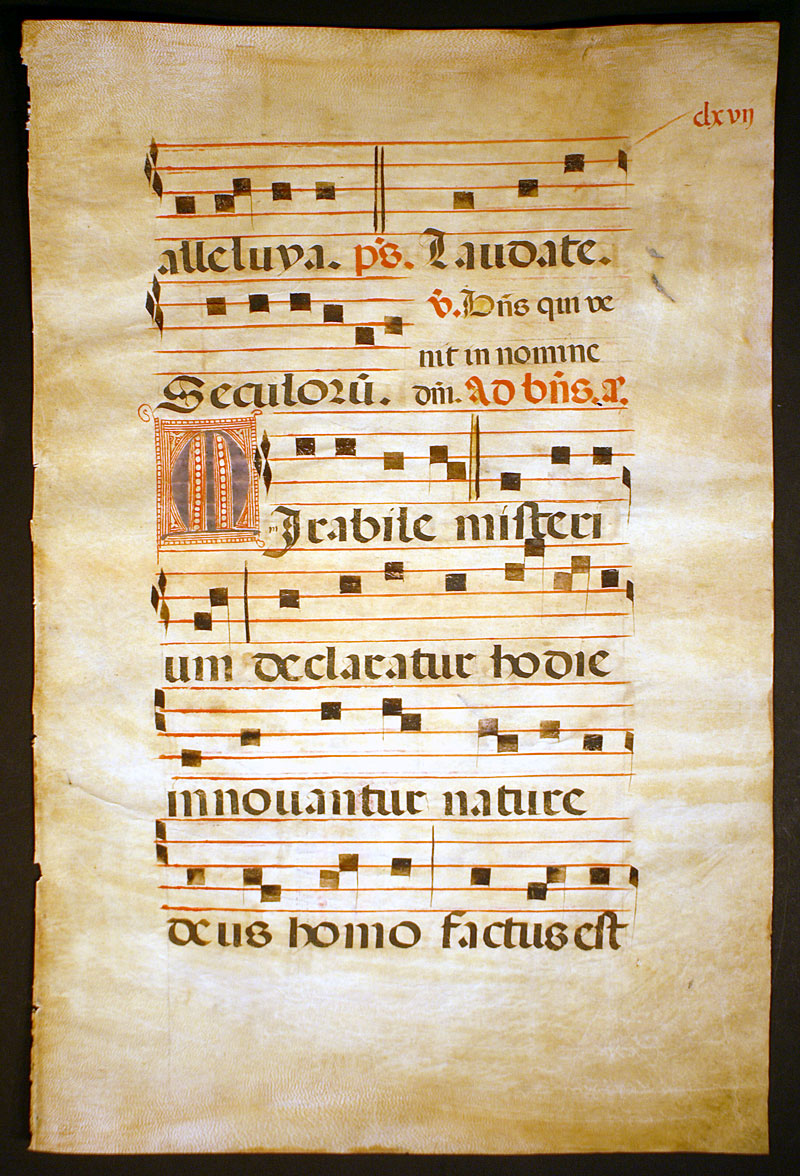 clxvij
alleluya. ps. Laudate.
v. Dñs qui ve
nit in nomine
Seculorũ. dñi. Ad bñs. a.
MIrabile misteri
um declaratur hodie
innovantur nature
deus homo factus est